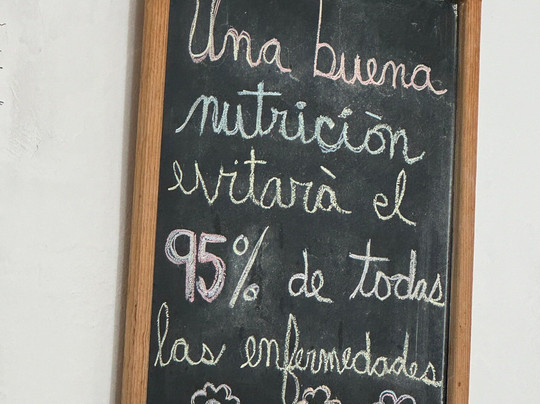 Una buena
nutriciòn
evitarà el
95% de todas
las enfermedades